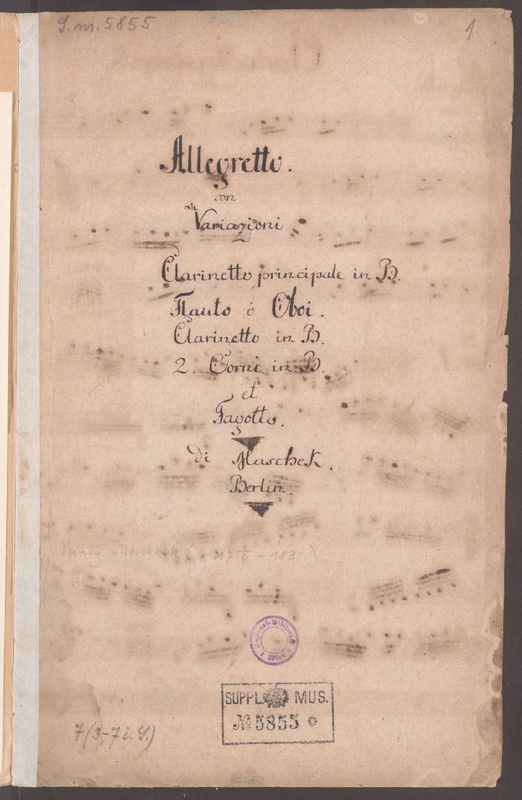 S.m. 5855
1.
Allegretto.
con
Variazioni
Clarinetto principale in B.
Flauto ô Oboi.
Clarinetto in B.
2. Corni in B.
et
Fagotto.
di Maschek.
Berlin.
SUPPL. MUS.
№ 5855
7(3-7 i. S.)